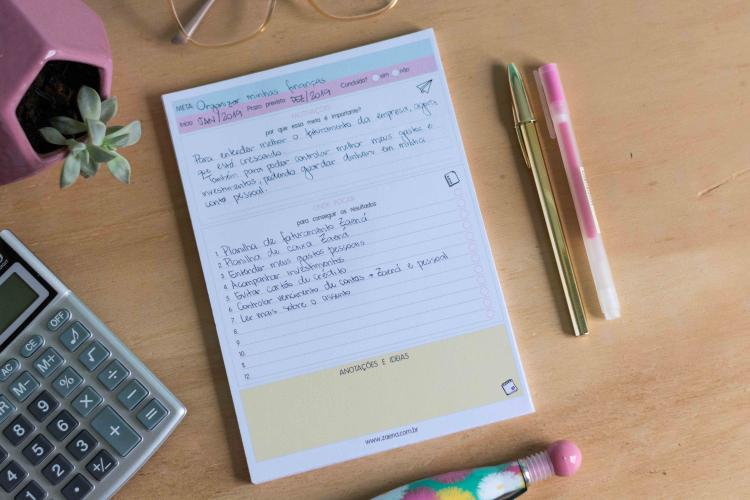 META: Organizar minhas finanças
Início JAN/2019 Prazo previsto DEZ/2019 Concluída? sim não
MOTIVAÇÃO
por que essa meta é importante?
Para entender melhor o faturamento da empresa, agora
que está crescendo.
Também para poder controlar melhor meus gastos e
investimentos, podendo guardar dinheiro em minha
conta pessoal.
ONDE FOCAR
para conseguir os resultados
1. Planilha de faturamento Zaená
2. Planilha de caixa Zaená
3. Entender meus gastos pessoais
4. Acompanhar investimentos
5. Evitar cartão de crédito
6. Controlar vencimento de contas → Zaená e pessoal
7. Ler mais sobre o assunto
8.
9.
10.
11.
12.
ANOTAÇÕES E IDEIAS
www.zaena.com.br
OFF
CE √
AC M+ ÷
M- % −
9 × =
8 6 +
5 3 +/-
4 2 •
1